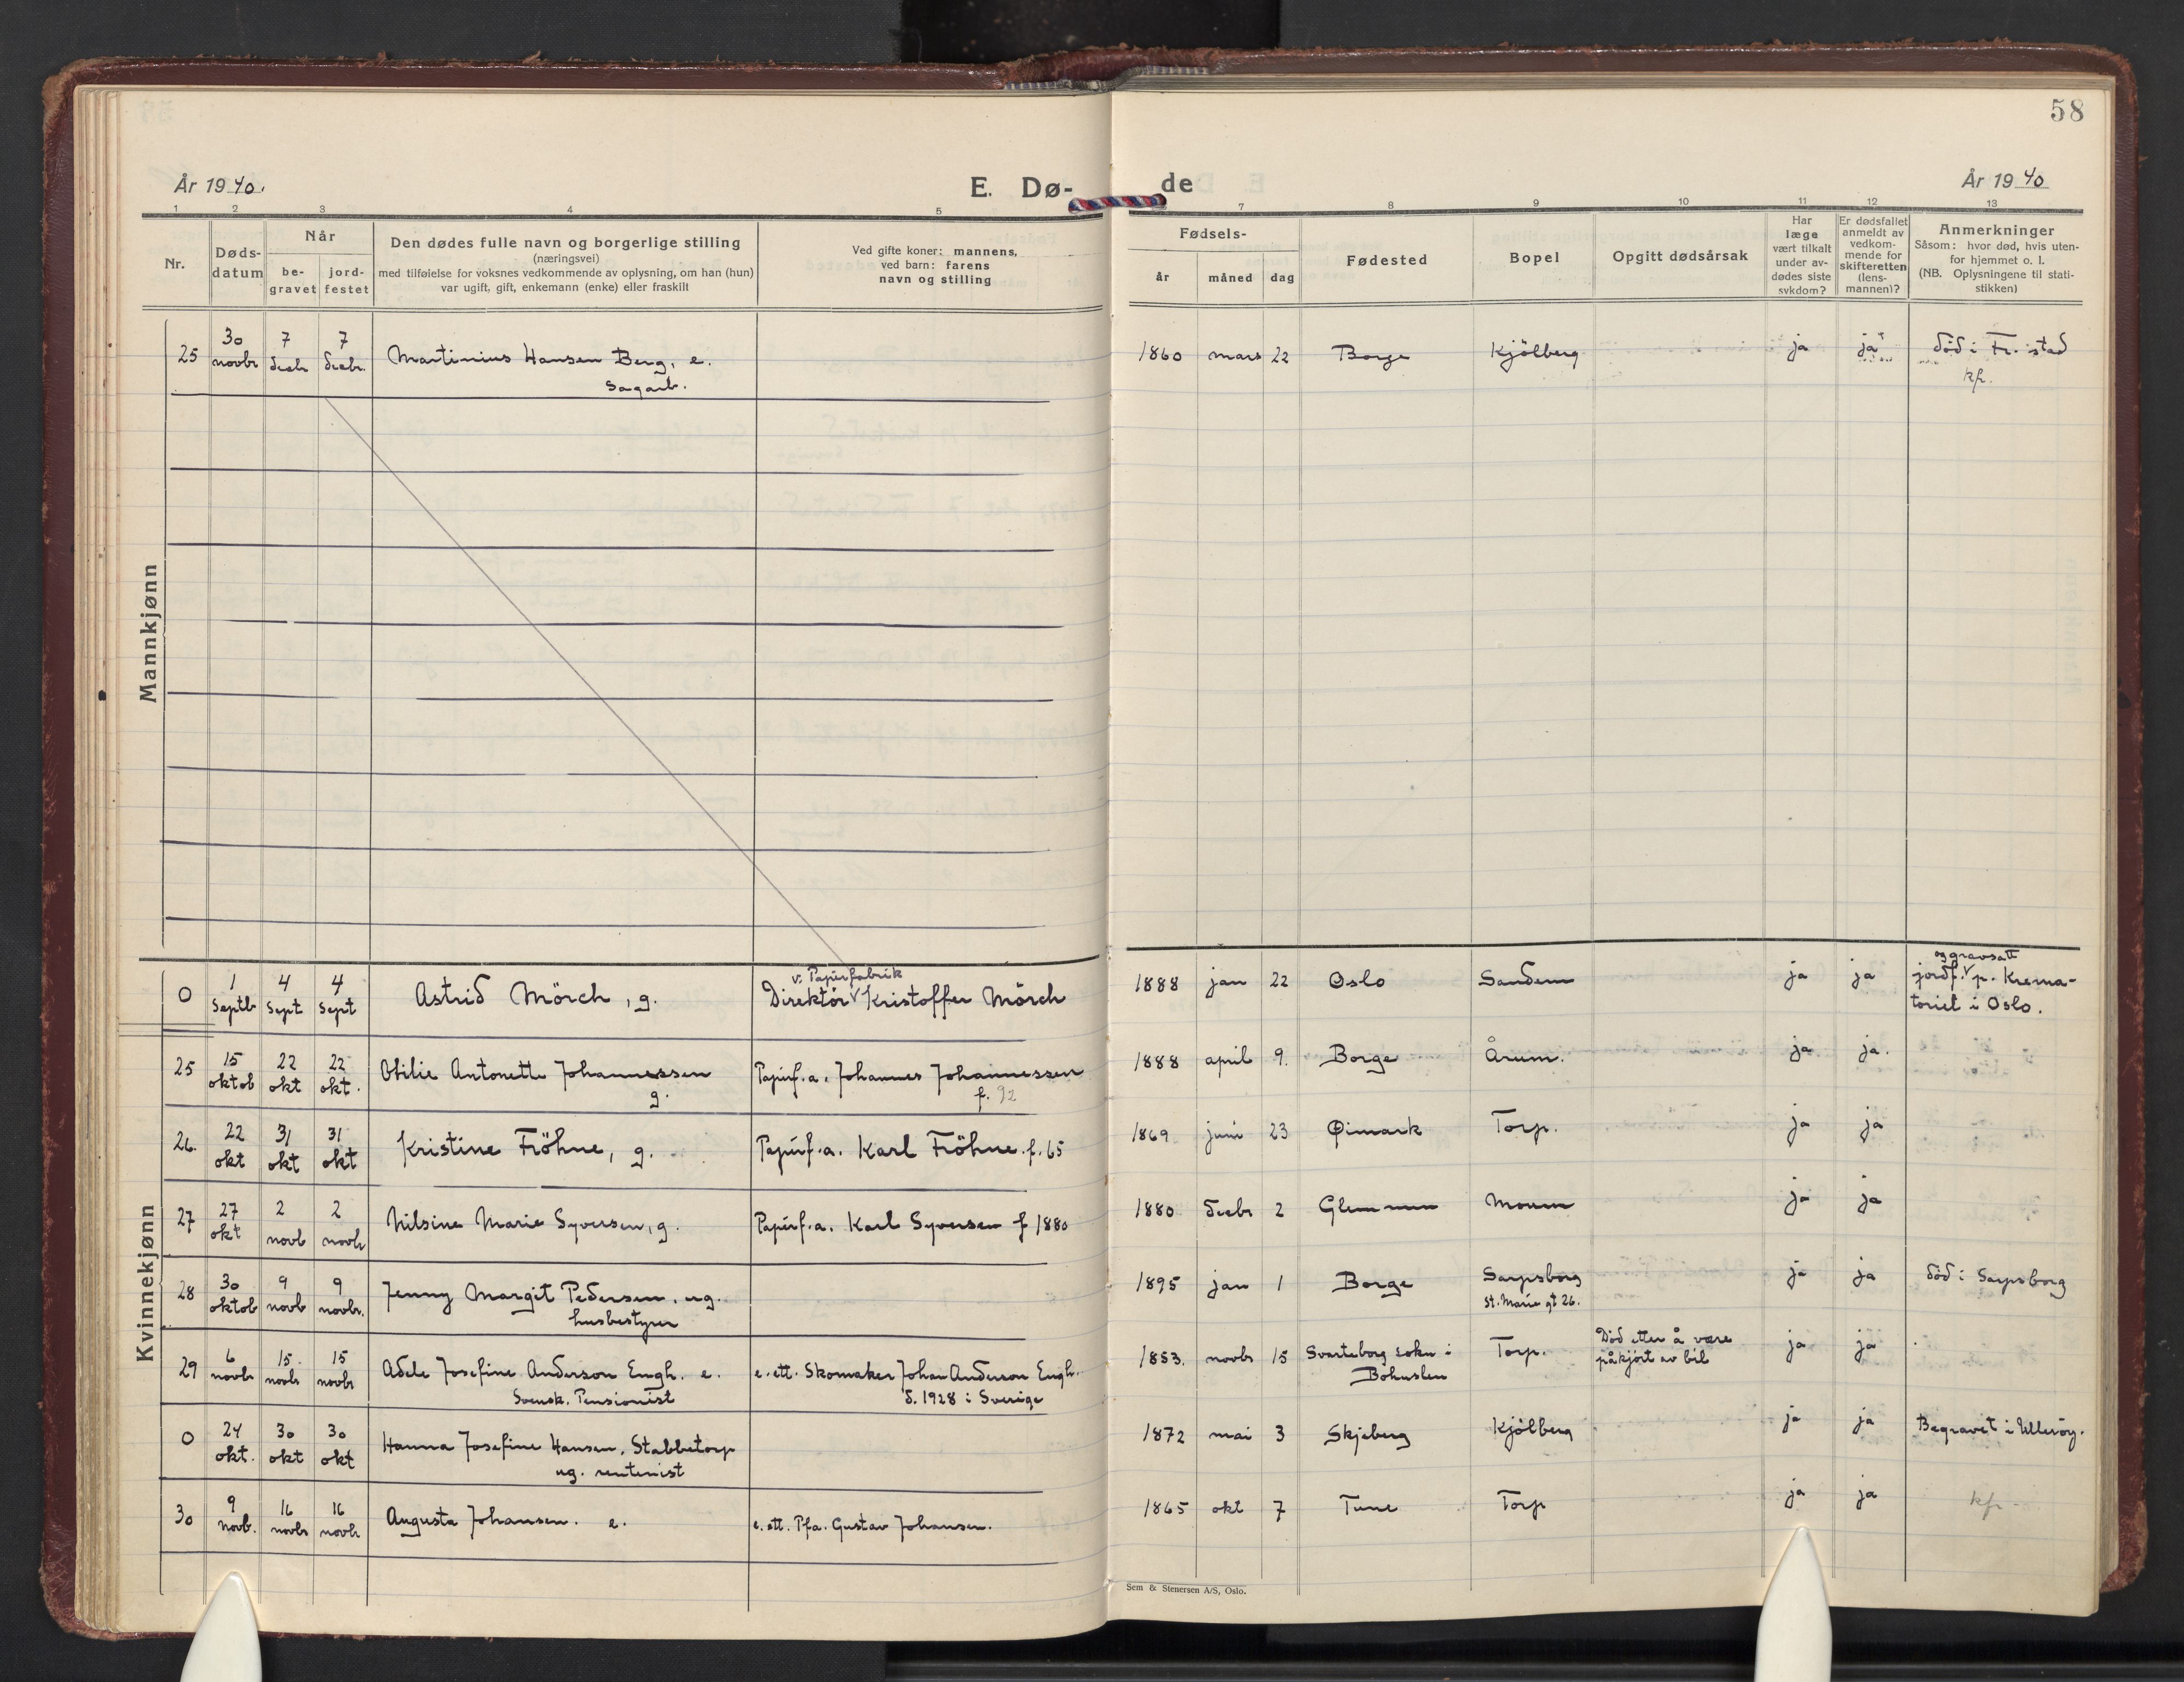 58
År 1940.
E. Dø-
de
År 1940
1 2 3 4 5 7 8 9 10 11 12 13
Nr.
Døds-
datum
Når
be-
gravet
jord-
festet
Den dødes fulle navn og borgerlige stilling
(næringsvei)
med tilføielse for voksnes vedkommende av oplysning, om han (hun)
var ugift, gift, enkemann (enke) eller fraskilt
Ved gifte koner: mannens,
ved barn: farens
navn og stilling
Fødsels-
år måned dag
Fødested
Bopel
Opgitt dødsårsak
Har
læge
vært tilkalt
under av-
dødes siste
sykdom?
Er dødsfallet
anmeldt av
vedkom-
mende for
skifteretten
(lens-
mannen)?
Anmerkninger
Såsom: hvor død, hvis uten-
for hjemmet o. l.
(NB. Oplysningene til stati-
stikken)
Mannkjønn
25 30 novbr 7 decbr 7 decbr. Martinius Hansen Berg, e. 1860 mars 22 Borge Kjölberg ja ja död i Fr.stad
Sagarb. kfr.
Kvinnekjønn
v. Papirfabrik og gravsatt
0 1 Septb 4 Sept 4 Sept Astrid Mörch, g. Direktör Kristoffer Mörch 1888 jan 22 Oslo Sandem ja ja jordf. p. Krema-
toriet i Oslo.
25 15 oktob 22 okt 22 okt. Otilie Antonette Johannessen Papirf.a. Johannes Johannessen 1888 april 9. Borge Årum. ja ja.
g. f. 92
26. 22 okt 31 okt 31 okt Kristine Fröhne, g. Papirf.a. Karl Fröhne f. 65 1869 juni 23 Øimark Torp. ja ja
27 27 okt 2 novb 2 novb Nilsine Marie Syversen, g. Papirf.a. Karl Syversen f 1880 1880 decbr 2 Glemmen Moum ja ja
28 30 oktob 9 novb 9 novbr. Jenny Margit Pedersen. ug. 1895 jan 1 Borge Sarpsborg ja ja död i Sarpsborg
husbestyrer St. Marie gt 26.
29 6 novbr 15 novbr 15 novbr Adele Josefine Anderson Engh. e. e. ett. Skomaker Johan Anderson Engh. 1853. novbr 15 Svarteborg sokn i Torp. Död etter å være ja ja
Svensk. Pensionist d. 1928 i Sverige Bohuslen påkjört av bil
0 24 okt. 30 okt 30 okt Hanna Josefine Hansen, Stabbetorp 1872 mai 3 Skjeberg Kjölberg ja ja Begravet i Ulleröy.
ug. rentenist
30 9 novb. 16 novbr 16 novbr Augusta Johansen. e. e. ett. Pfa. Gustav Johansen. 1865 okt 7 Tune Torp ja ja kfr
Sem & Stenersen A/S, Oslo.